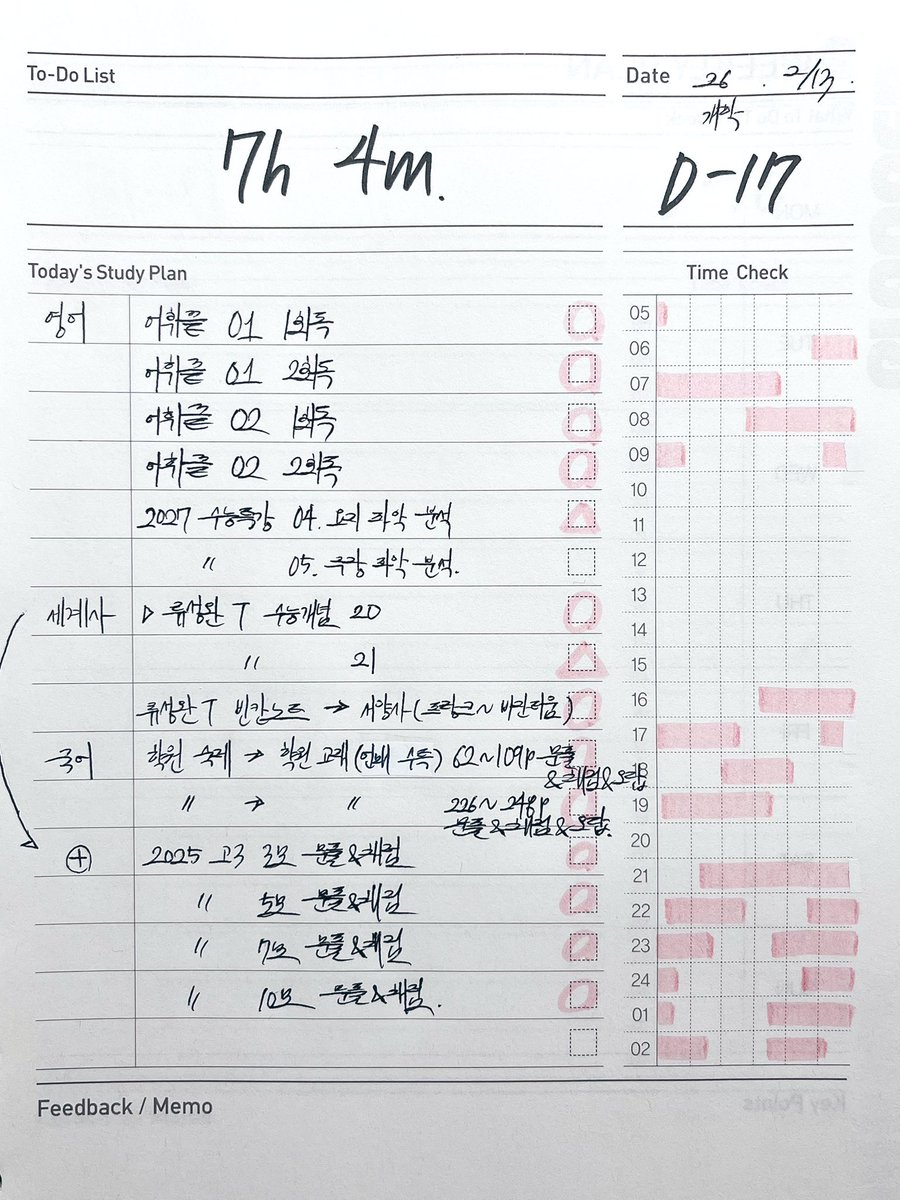 To-Do List
Date 26 . 2/13 .
개학
7h 4m.
D-17
Today's Study Plan
Time Check
영어 어휘끝 01 1회독
어휘끝 01 2회독
어휘끝 02 1회독
어휘끝 02 2회독
2027 수능특강 04. 요지 파악 분석
〃 05. 주장 파악 분석.
세계사 ▷ 류성완 T 수능개념 20
〃 21
류성완 T 빈칸노트 → 서양사 (프랑크~비잔티움)
국어 학원 숙제 → 학원 교재 (언매 수특) 62~109p 문풀
&채점&오답
〃 → 〃 226~248p
문풀&채점&오답.
⊕ 2025 고3 3모 문풀&채점
〃 5모 문풀&채점
〃 7모 문풀&채점
〃 10모 문풀&채점.
05
06
07
08
09
10
11
12
13
14
15
16
17
18
19
20
21
22
23
24
01
02
Feedback / Memo